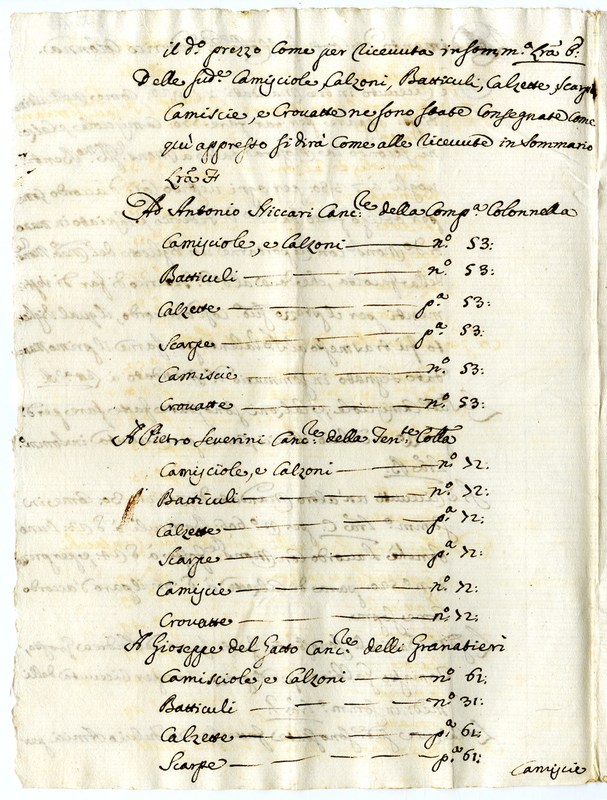 il d.º prezzo Come per ricevuta in somm.ª Lrã G:
Delle sud.e Camisciole, Calzoni, Batticuli, Calzette, Scarpe
Camiscie, e Crovatte ne sono state Consegnate Come
quì appresso si dirà Come alle ricevute in Sommario
Lrã H
Ad Antonio Ficcari Canc.re della Comp.ª Colonnella
Camisciole, e Calzoni — n.º 53:
Batticuli — n.º 53:
Calzette — p.ª 53:
Scarpe — p.ª 53:
Camiscie — n.º 53:
Crovatte — n.º 53:
A Pietro Severini Canc.re della Ten.te Colla
Camisciole, e Calzoni — n.º 72:
Batticuli — n.º 72:
Calzette — p.ª 72:
Scarpe — p.ª 72:
Camiscie — n.º 72:
Crovatte — n.º 72:
A Gioseppe del Gatto Canc.re delli Granatieri
Camisciole, e Calzoni — n.º 61:
Batticuli — n.º 31:
Calzette — p.ª 61:
Scarpe — p.ª 61:
Camiscie